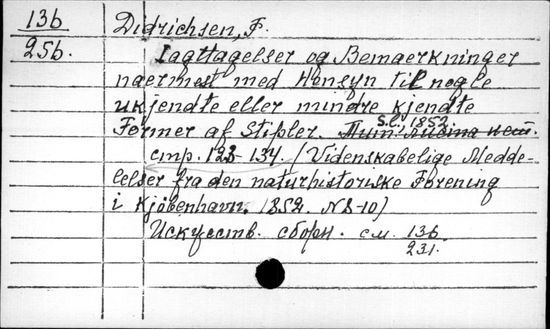 136
25б.
Didrichsen, F.
Iagttagelser og Bemaerkninger
naermest med Hensyn til nogle
ukjendte eller mindre kjendte
Former af Stipler. S.l., 1852.
стр. 123-134. (Videnskabelige Medde-
lelser fra den naturhistoriske Forening
i Kjöbenhavn. 1852. N 8-10)
Искусств. сборн. см. 136
231.